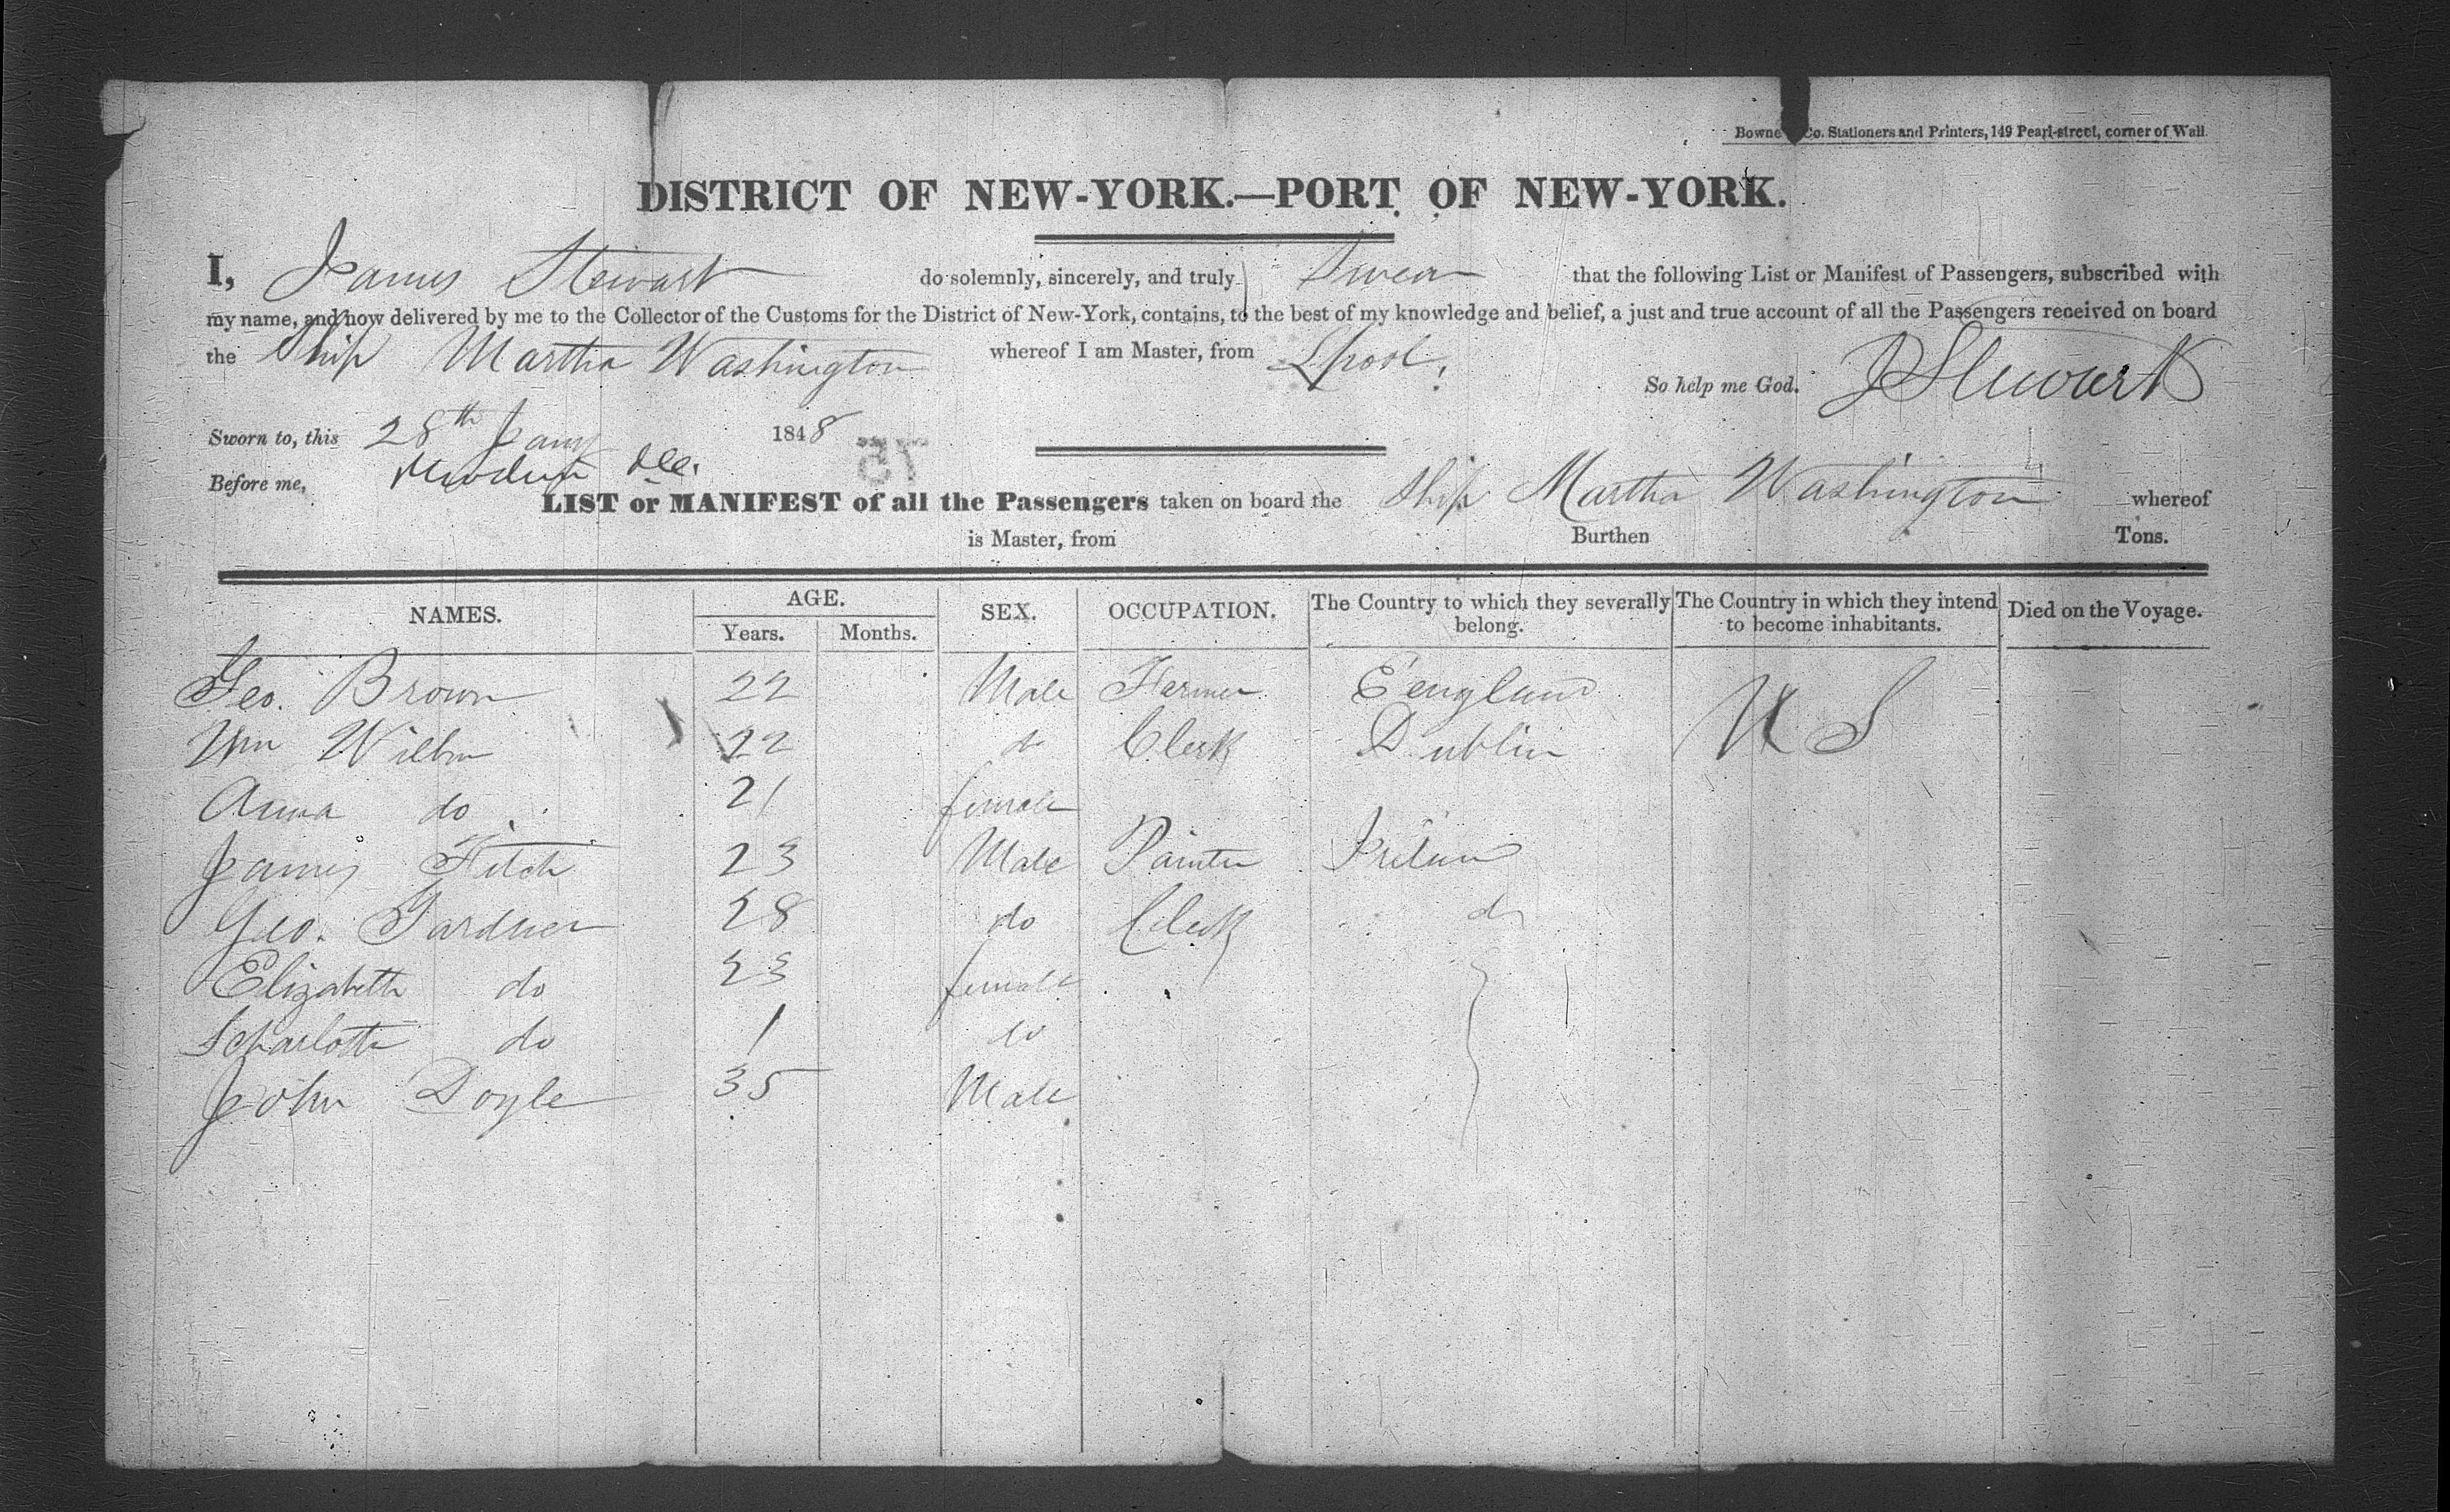 Bowne Co. Stationers and Printers, 149 Pearl-street, corner of Wall.
DISTRICT OF NEW-YORK.—PORT OF NEW-YORK.
I, James Stewart do solemnly, sincerely, and truly Swear that the following List or Manifest of Passengers, subscribed with
my name, and now delivered by me to the Collector of the Customs for the District of New-York, contains, to the best of my knowledge and belief, a just and true account of all the Passengers received on board
the Ship Martha Washington whereof I am Master, from Lpool.
So help me God. J Stewart
Sworn to, this 28th Jany 1848
Before me,
LIST or MANIFEST of all the Passengers taken on board the Ship Martha Washington whereof
is Master, from Burthen Tons.
NAMES. AGE. Years. Months. SEX. OCCUPATION. The Country to which they severally belong. The Country in which they intend to become inhabitants. Died on the Voyage.
Geo. Brown 22 Male Farmer England U S
Wm 22 do Clerk Dublin
Anna do 21 female
James Fitch 23 Male Painter
Geo. Gardner 28 do Clerk do
Elizabeth do 23 female
Scharlotte do 1 do
John Doyle 35 Male